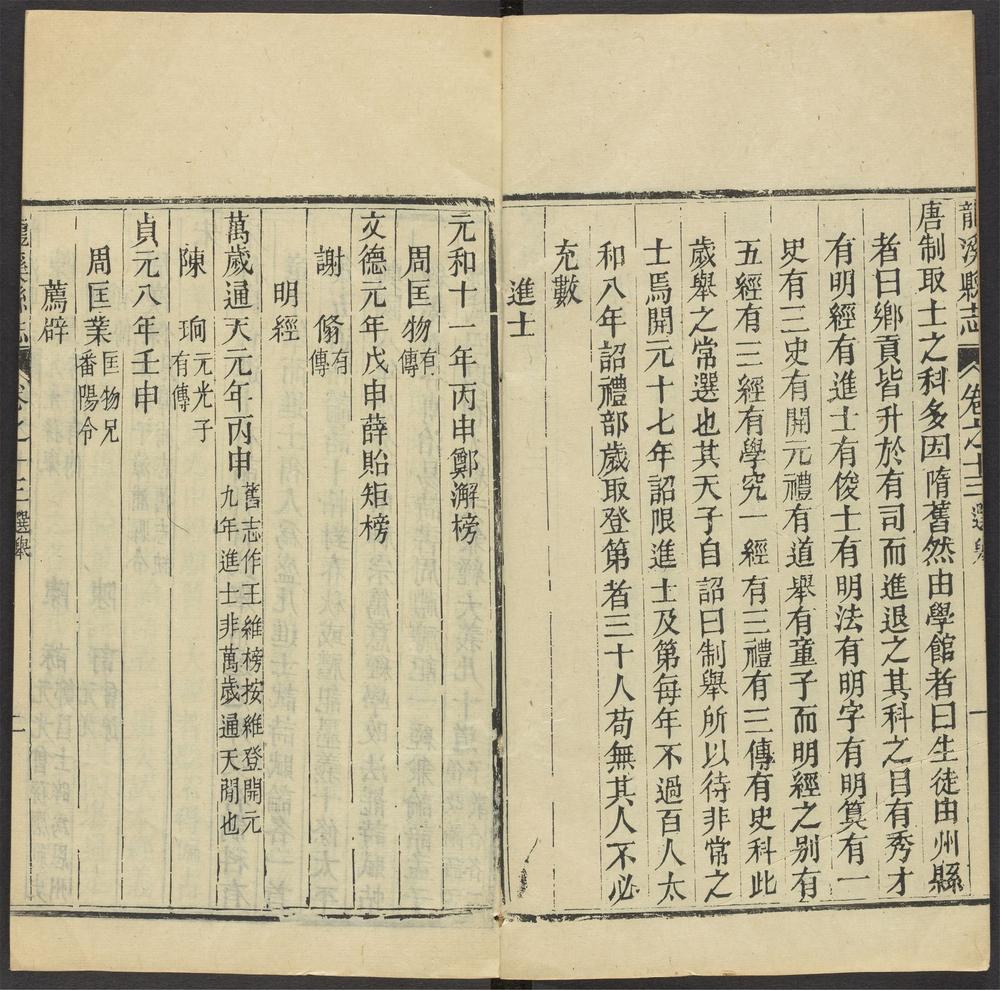 龍溪縣志 卷之十三 選舉 一
唐制取士之科多因隋舊然由學館者曰生徒由州縣
者曰鄉貢皆升於有司而進退之其科之目有秀才
有明經有進士有俊士有明法有明字有明算有一
史有三史有開元禮有道舉有童子而明經之別有
五經有三經有學究一經有三禮有三傳有史科此
歲舉之常選也其天子自詔曰制舉所以待非常之
士焉開元十七年詔限進士及第每年不過百人太
和八年詔禮部歲取登第者三十人苟無其人不必
充數
進士
元和十一年丙申鄭澥榜
周匡物有傳
文德元年戊申薛貽矩榜
謝翛有傳
明經
萬歲通天元年丙申舊志作王維榜按維登開元九年進士非萬歲通天間也
陳珦元光子有傳
貞元八年壬申
周匡業匡物兄番陽令
薦辟
龍溪縣志 卷之十三 選舉 二